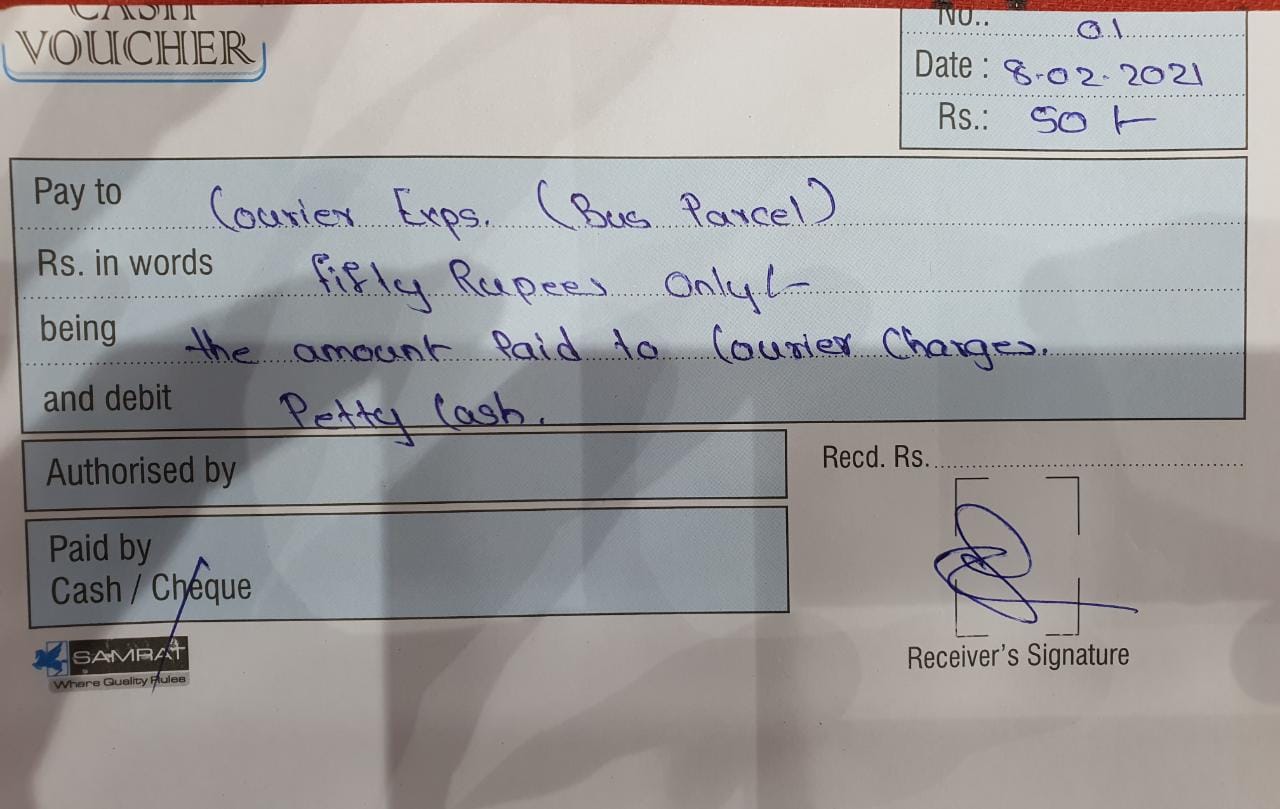 CASH
VOUCHER
No.: 01
Date : 8.02.2021
Rs.: 50 /-
Pay to Courier Exps. (Bus Parcel)
Rs. in words fifty Rupees Only/-
being the amount Paid to Courier Charges.
and debit Petty Cash.
Authorised by
Recd. Rs.
Paid by
Cash / Cheque
SAMRAT
Where Quality Rules
Receiver's Signature